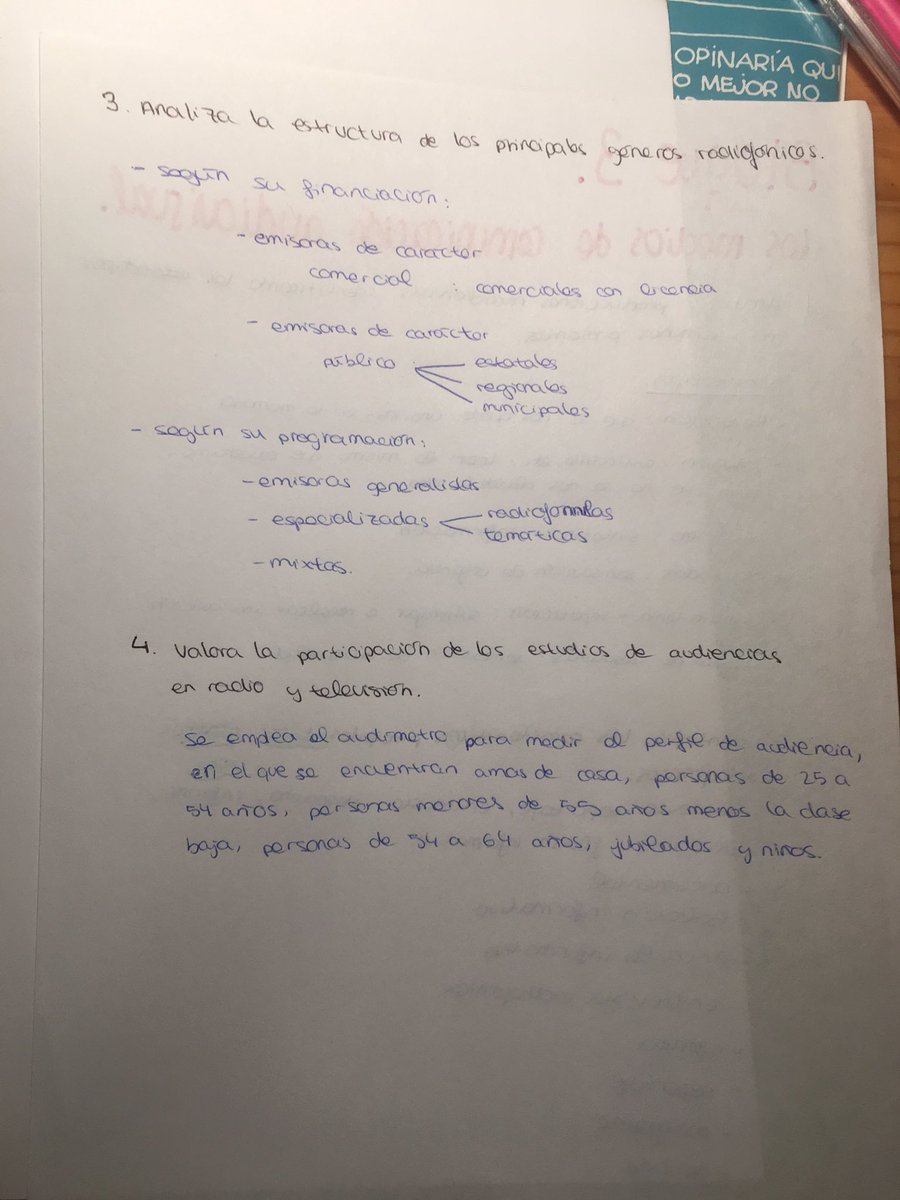 OPINARÍA QU
O MEJOR NO
3. Analiza la estructura de los principales generos radiofonicos.
- según su financiación:
- emisoras de carácter
comercial : comerciales con licencia
- emisoras de carácter
público
estatales
regionales
municipales
- según su programación:
- emisoras generalistas
- especializadas
radioformulas
temáticas
- mixtas.
4. Valora la participación de los estudios de audiencias
en radio y televisión.
se emplea el audímetro para medir el perfil de audiencia,
en el que se encuentran amas de casa, personas de 25 a
54 años, personas menores de 55 años menos la clase
baja, personas de 54 a 64 años, jubilados y niños.